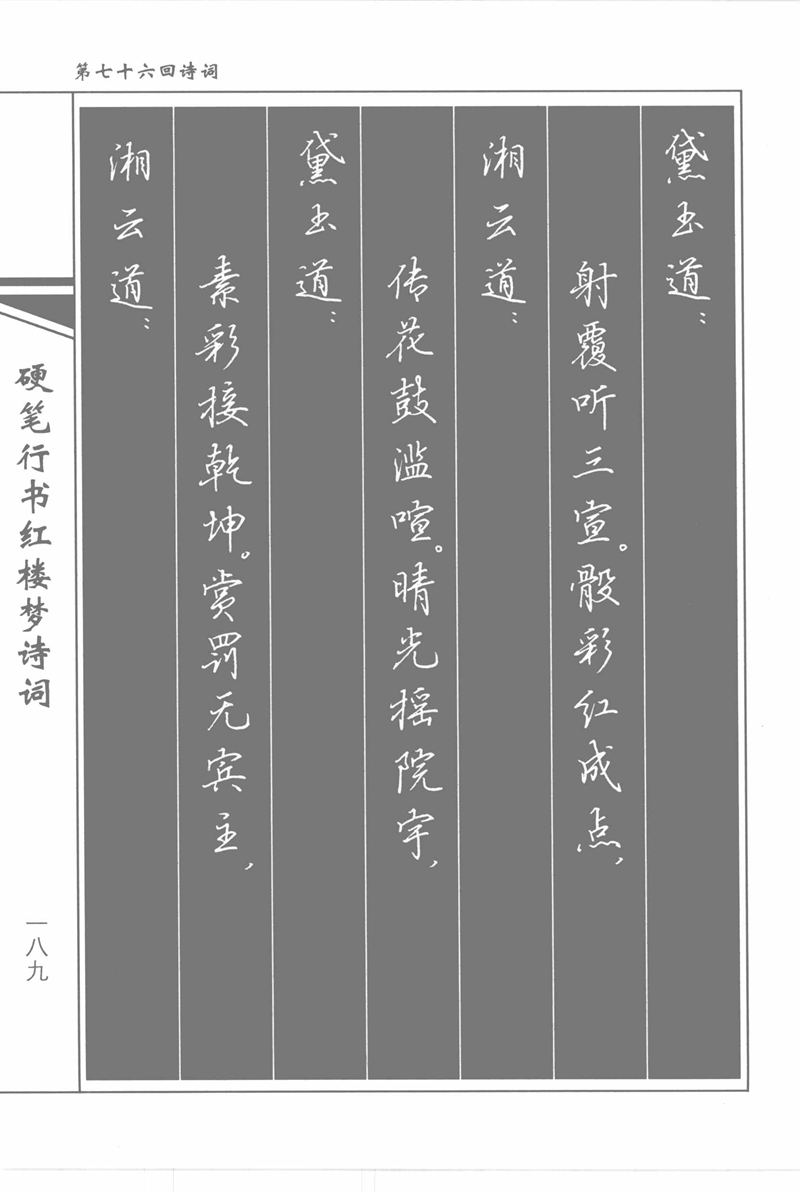 第七十六回诗词
黛玉道：
射覆听三宣。骰彩红成点，
湘云道：
传花鼓滥喧。晴光摇院宇，
黛玉道：
素彩接乾坤。赏罚无宾主，
湘云道：
硬笔行书红楼梦诗词
一八九